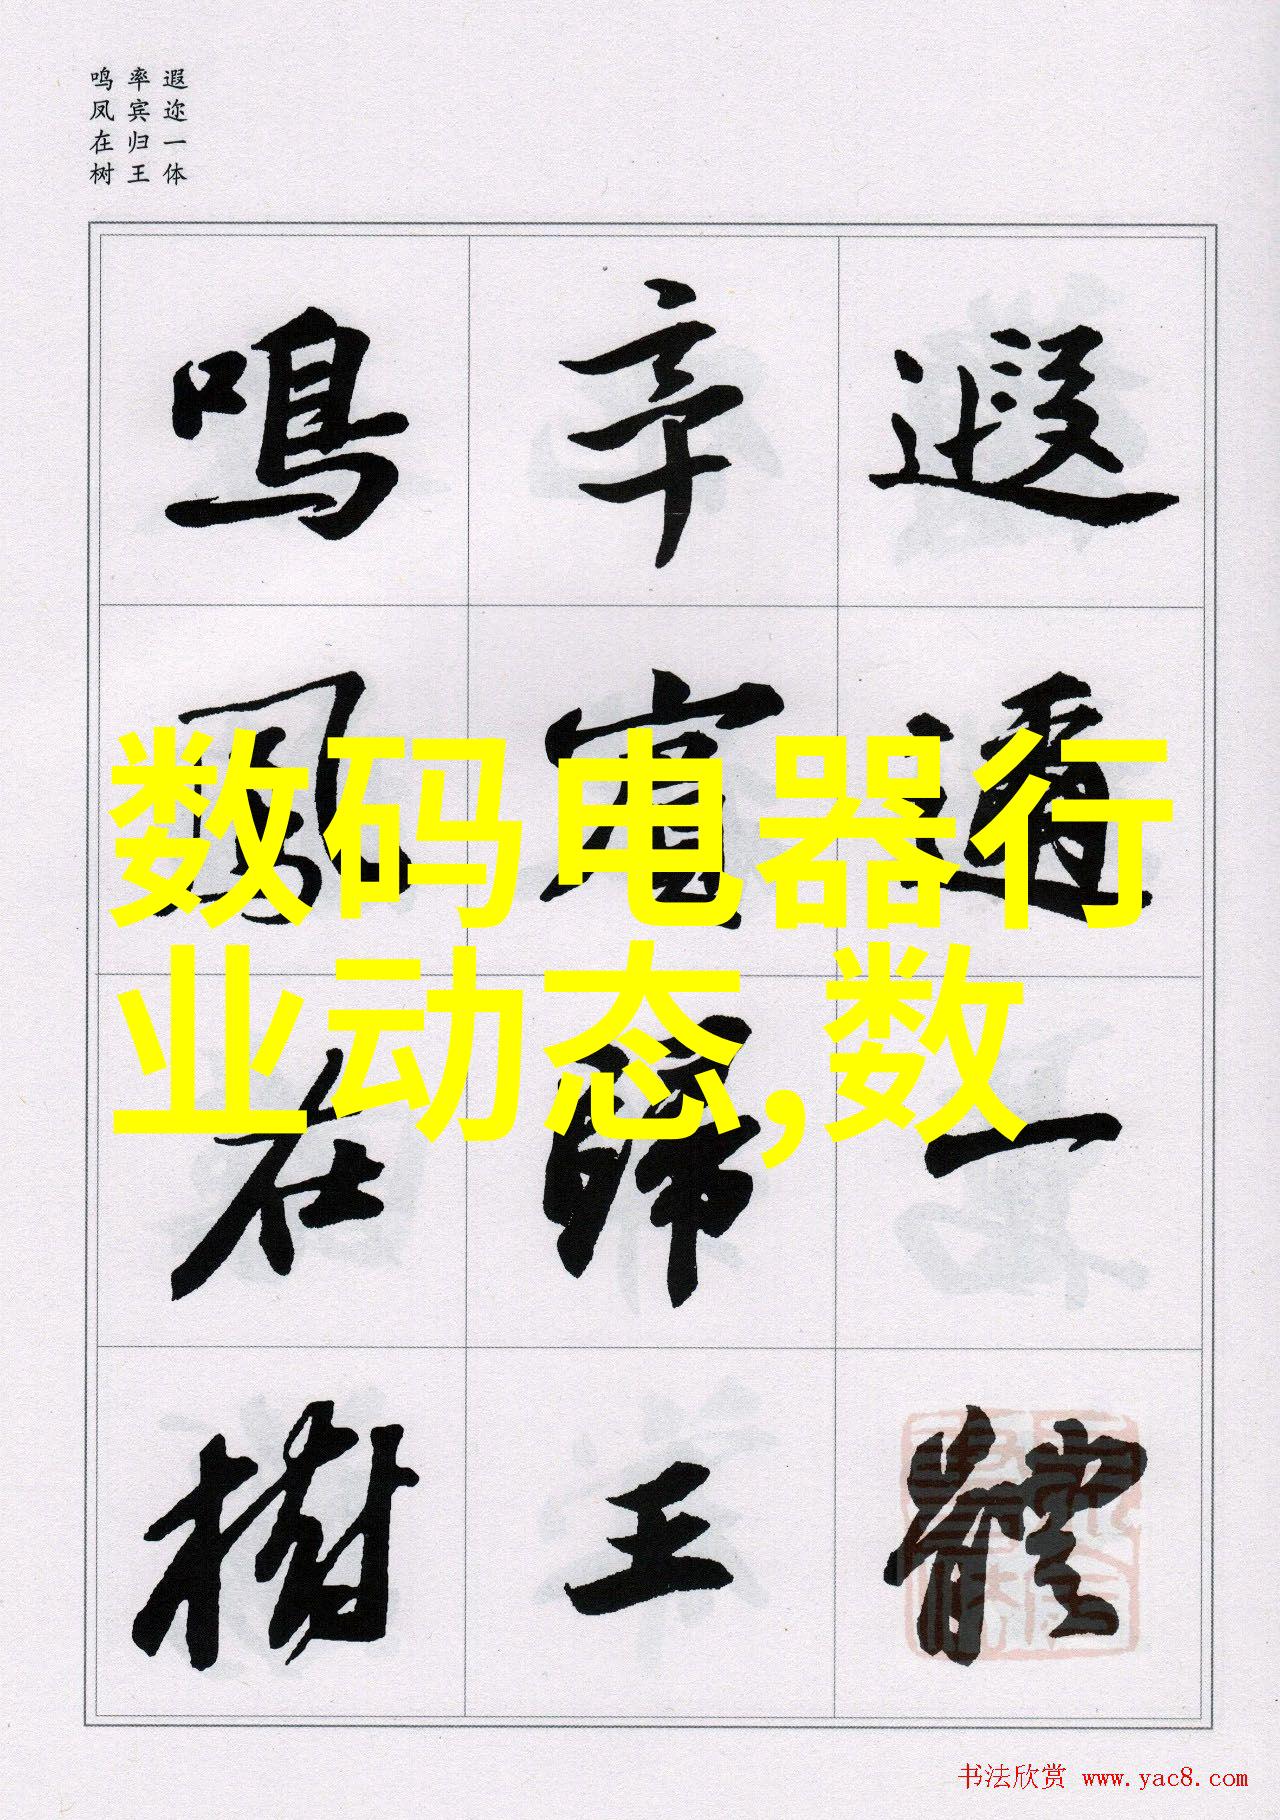 遐迩一体
率宾归王
鸣凤在树
遐邇一體
率賓歸王
鳴鳳在樹
数码电器行
业动态,数
书法欣赏 www.yac8.com